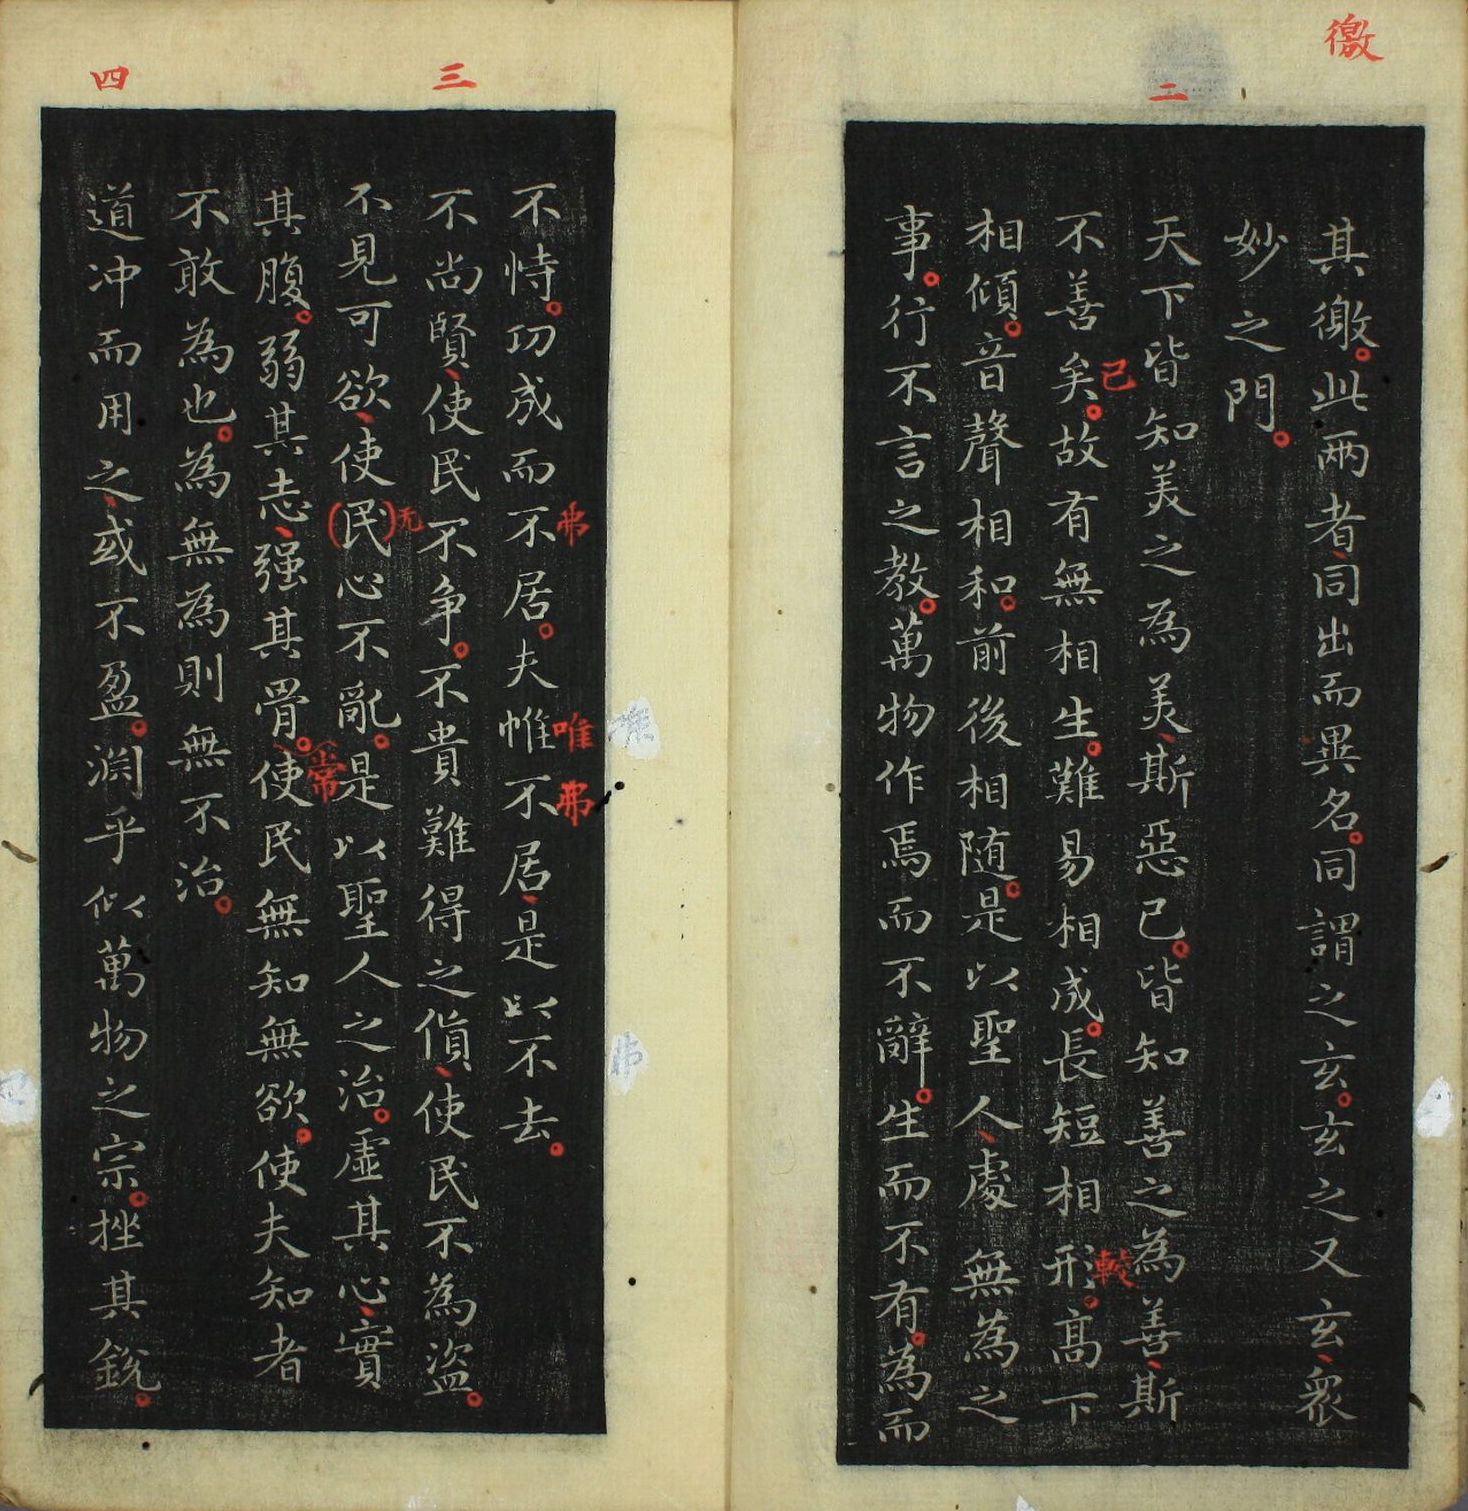 徼
二
其徼。此兩者、同出而異名。同謂之玄。玄之又玄、衆
妙之門。
天下皆知美之為美、斯惡已。皆知善之為善、斯
不善矣。故有無相生。難易相成。長短相形。高下
已
較
相傾。音聲相和。前後相随。是以聖人、處無為之
事。行不言之教。萬物作焉而不辭。生而不有。為而
三
四
不恃。功成而不居。夫惟不居、是以不去。
弗
唯
弗
不尚賢、使民不争。不貴難得之貨、使民不為盜。
不見可欲、使(民)心不亂。是以聖人之治。虛其心、實
无
其腹。弱其志、强其骨。使民無知無欲。使夫知者
常
不敢為也。為無為則無不治。
道冲而用之、或不盈。淵乎似萬物之宗。挫其銳。